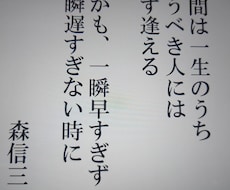 間は一生のうち
うべき人には
ず逢える
かも、一瞬早すぎず
瞬遅すぎない時に
森信三